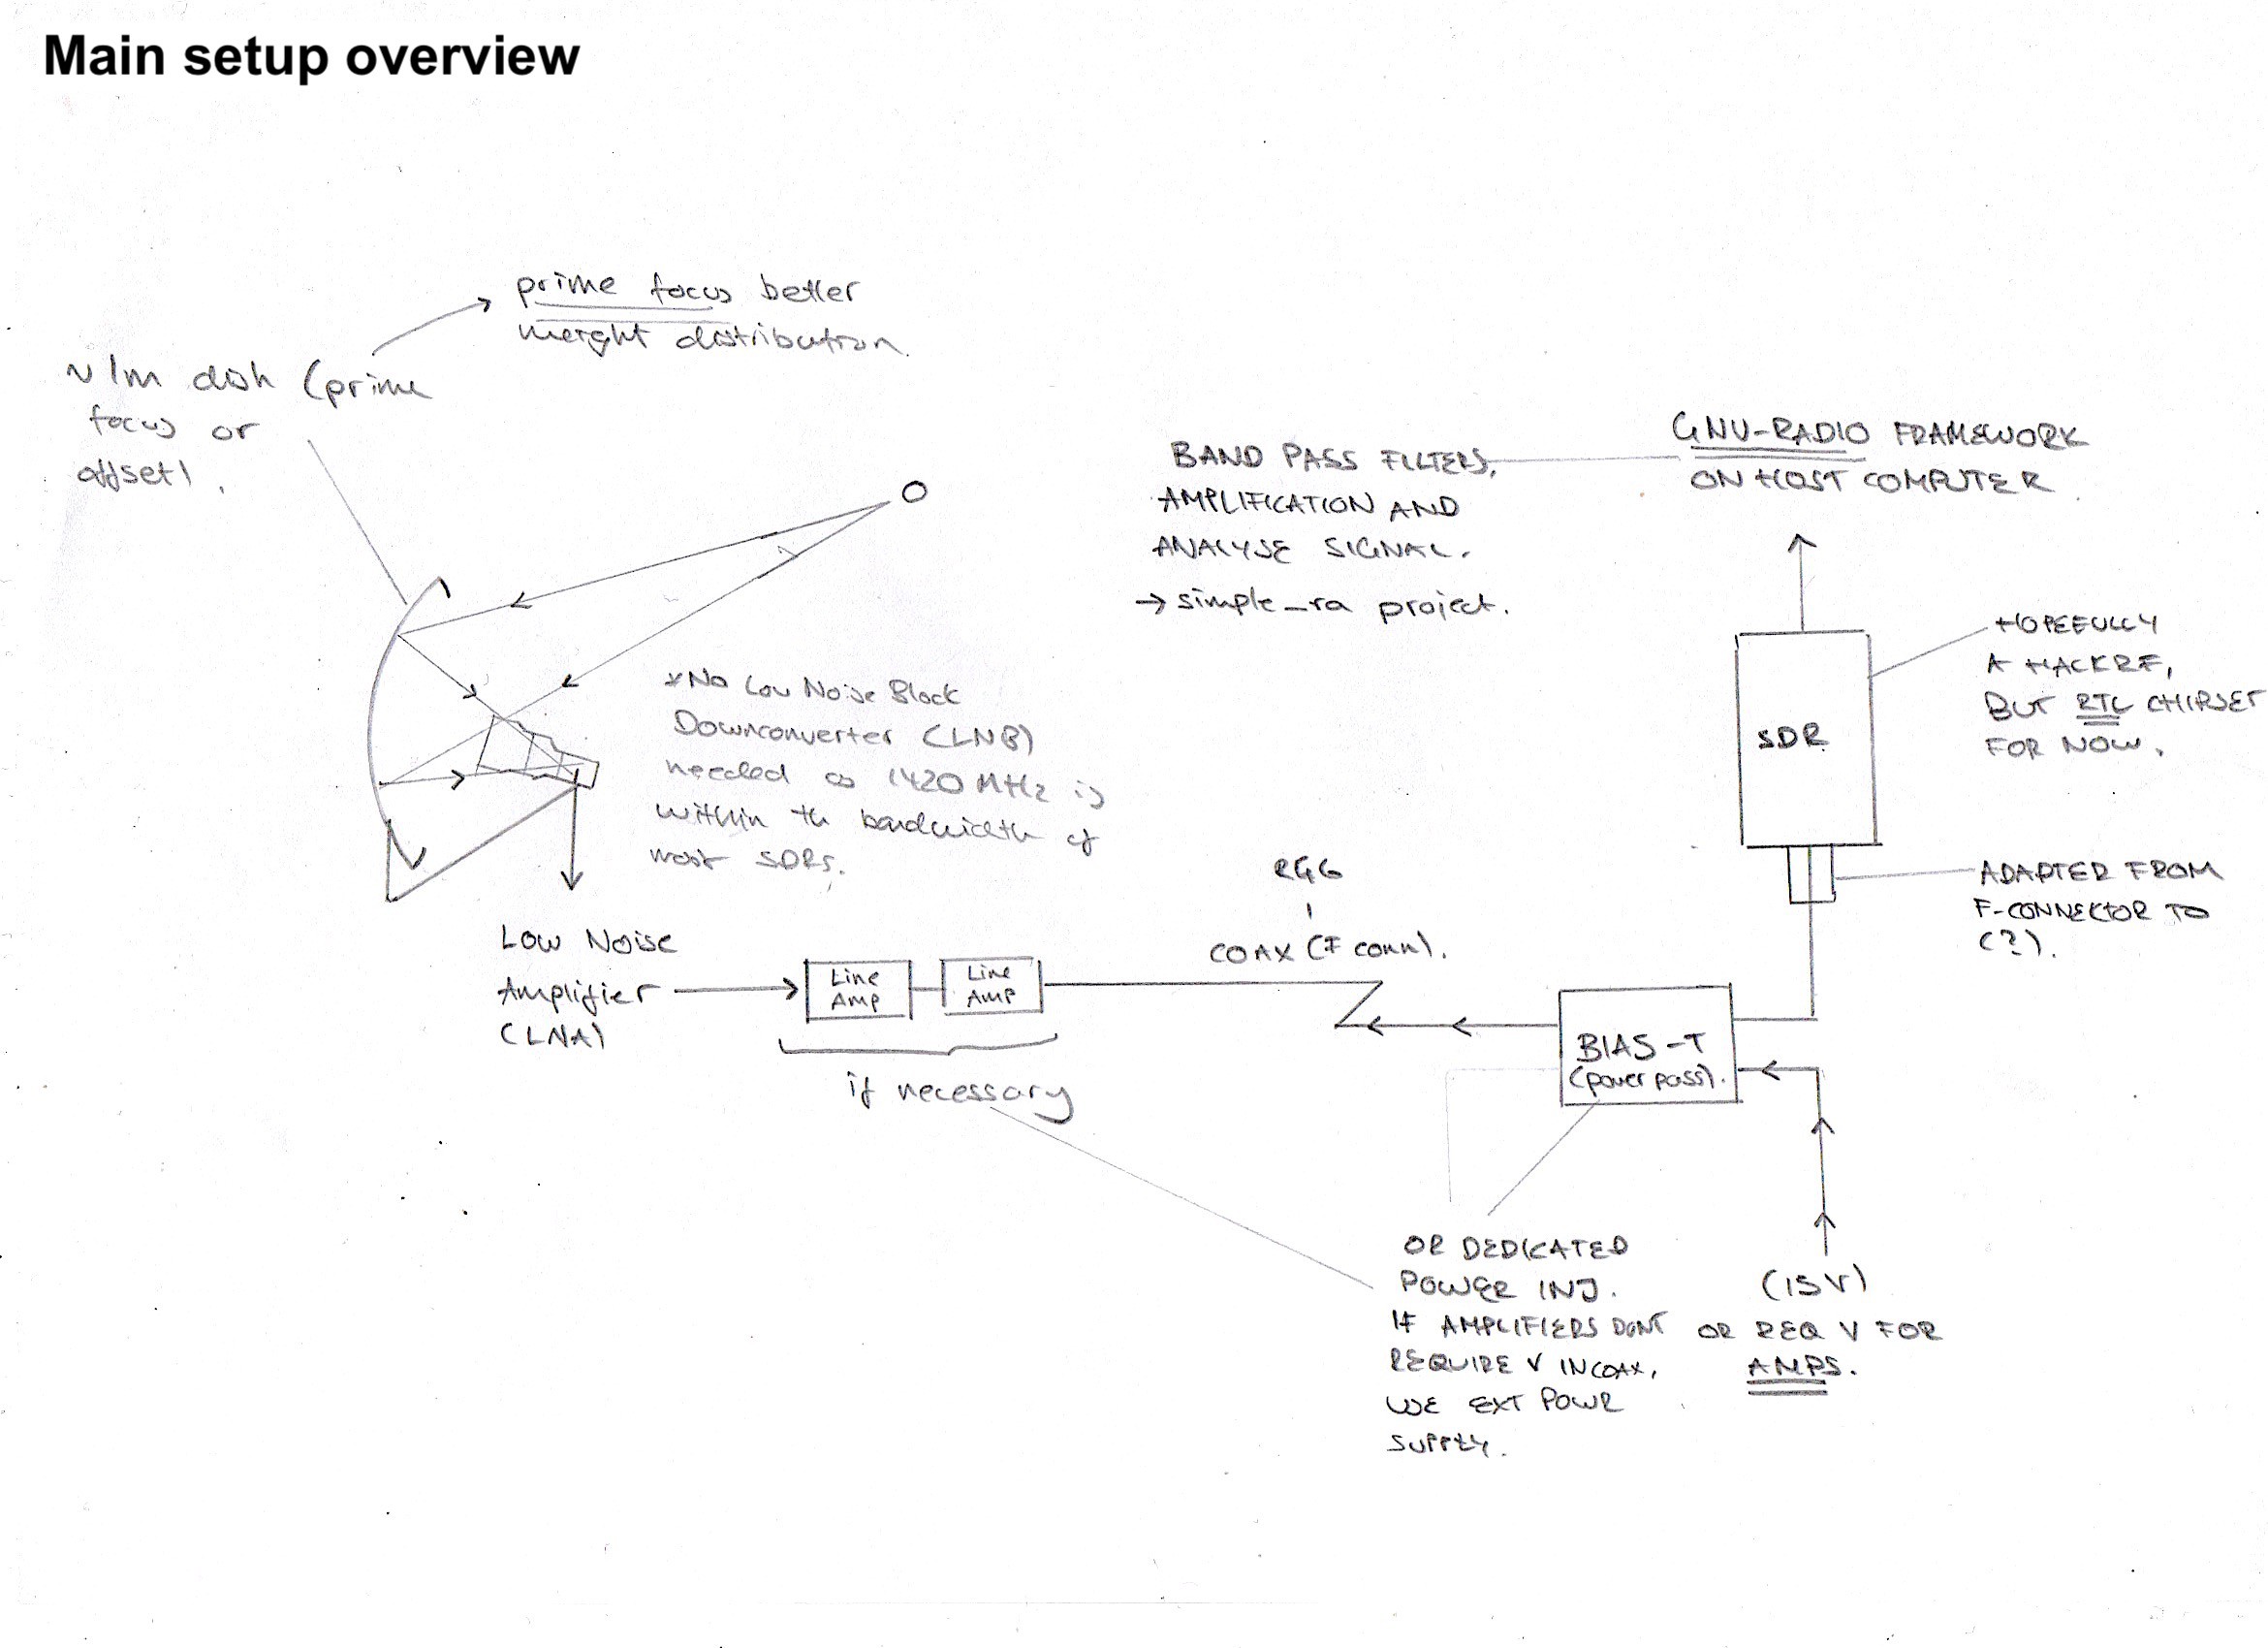 Main setup overview
prime focus better
weight distribution.
~ 1m dish (prime
focus or
offset).
BAND PASS FILTERS,
AMPLIFICATION AND
ANALYSE SIGNAL.
→ simple_ra project.
GNU-RADIO FRAMEWORK
ON HOST COMPUTER
*No Low Noise Block
Downconverter (LNB)
needed as 1420 MHz is
within th bandwidth of
most SDRs.
HOPEFULLY
A HACKRF,
BUT RTL CHIPSET
FOR NOW.
SDR
ADAPTER FROM
F-CONNECTOR TO
(?).
Low Noise
Amplifier
(LNA)
Line
Amp
Line
Amp
if necessary
RG6
COAX (F conn).
BIAS-T
(power pass).
OR DEDICATED
POWER INJ.
IF AMPLIFIERS DONT
REQUIRE V IN COAX,
USE EXT POWR
SUPPLY.
(15V)
OR REQ V FOR
AMPS.